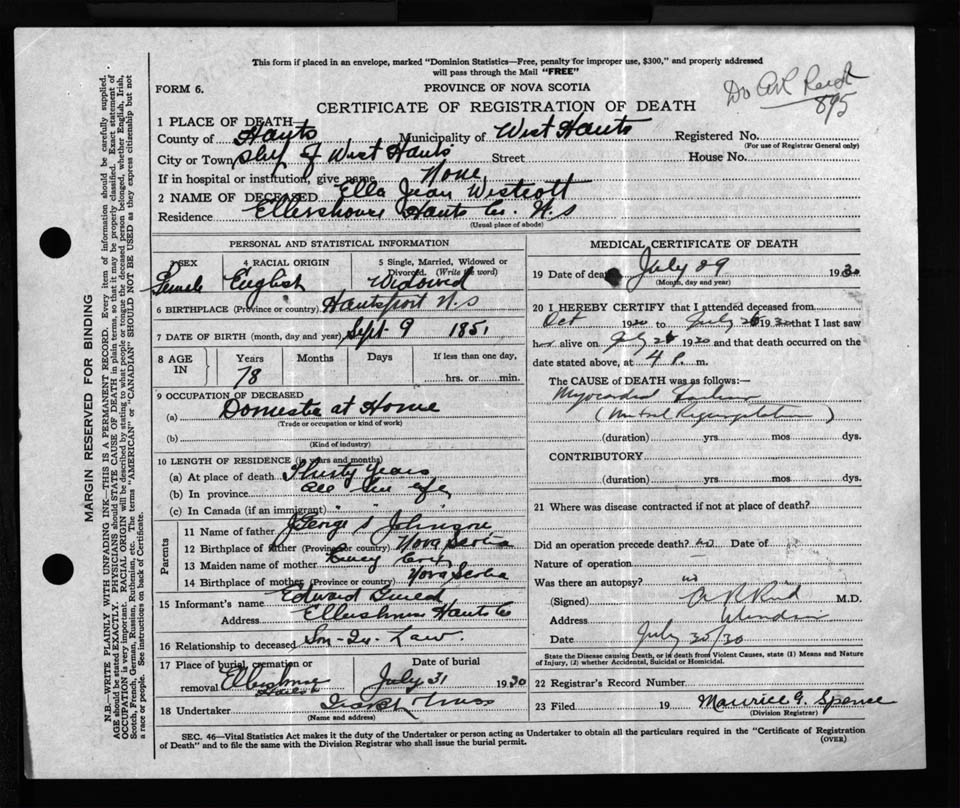 This form if placed in an envelope, marked "Dominion Statistics—Free, penalty for improper use, $300," and properly addressed
will pass through the Mail "FREE"
FORM 6.
PROVINCE OF NOVA SCOTIA
CERTIFICATE OF REGISTRATION OF DEATH
895
1 PLACE OF DEATH
County of Hants Municipality of West Hants Registered No.
(For use of Registrar General only)
City or Town of West Hants Street House No.
If in hospital or institution, give name None
2 NAME OF DECEASED Ella Jean Westcott
Residence Ellershouse Hants Co. N.S
(Usual place of abode)
PERSONAL AND STATISTICAL INFORMATION
3 SEX 4 RACIAL ORIGIN 5 Single, Married, Widowed or Divorced. (Write the word)
Female English Widowed
6 BIRTHPLACE (Province or country) Hantsport N.S
7 DATE OF BIRTH (month, day and year) Sept 9 1851
8 AGE IN Years Months Days If less than one day,
78 hrs. or min.
9 OCCUPATION OF DECEASED
(a) Domestic at Home
(Trade or occupation or kind of work)
(b)
(Kind of industry)
10 LENGTH OF RESIDENCE (in years and months)
(a) At place of death Thirty Years
(b) In province all her life
(c) In Canada (if an immigrant)
Parents
11 Name of father George S Johnson
12 Birthplace of father (Province or country) Nova Scotia
13 Maiden name of mother
14 Birthplace of mother (Province or country) Nova Scotia
15 Informant's name Edward
Address Ellershouse Hants Co
16 Relationship to deceased Son-In-Law.
17 Place of burial, cremation or removal Ellershouse
Date of burial July 31 1930
18 Undertaker
(Name and address)
MEDICAL CERTIFICATE OF DEATH
19 Date of death July 29 1930
(Month, day and year)
20 I HEREBY CERTIFY that I attended deceased from
Oct 19 to July 1930 that I last saw
her alive on July 1930 and that death occurred on the
date stated above, at 4 P. m.
The CAUSE OF DEATH was as follows:—
Myocardial Failure
(Mitral Regurgitation)
(duration) yrs. mos dys.
CONTRIBUTORY
(duration) yrs. mos. dys.
21 Where was disease contracted if not at place of death?
Did an operation precede death? no Date of
Nature of operation
Was there an autopsy? no
(Signed) M.D.
Address Windsor
Date July 30/30
State the Disease causing Death, or in death from Violent Causes, state (1) Means and Nature
of Injury, (2) whether Accidental, Suicidal or Homicidal.
22 Registrar's Record Number
23 Filed 19 Maurice G. Spence
(Division Registrar)
SEC. 46—Vital Statistics Act makes it the duty of the Undertaker or person acting as Undertaker to obtain all the particulars required in the "Certificate of Registration
of Death" and to file the same with the Division Registrar who shall issue the burial permit.
(OVER)
MARGIN RESERVED FOR BINDING
N.B.—WRITE PLAINLY WITH UNFADING INK—THIS IS A PERMANENT RECORD. Every item of information should be carefully supplied.
AGE should be stated EXACTLY. PHYSICIANS should STATE CAUSE OF DEATH in plain terms, so that it may be properly classified. Exact statement of
OCCUPATION is very important. RACIAL ORIGIN will be described by stating to what people or tongue the deceased person belonged, whether English, Irish,
Scotch, French, German, Russian, Ruthenian, etc. The terms "AMERICAN" or "CANADIAN" SHOULD NOT BE USED as they express citizenship but not
a race or people. See instructions on back of Certificate.